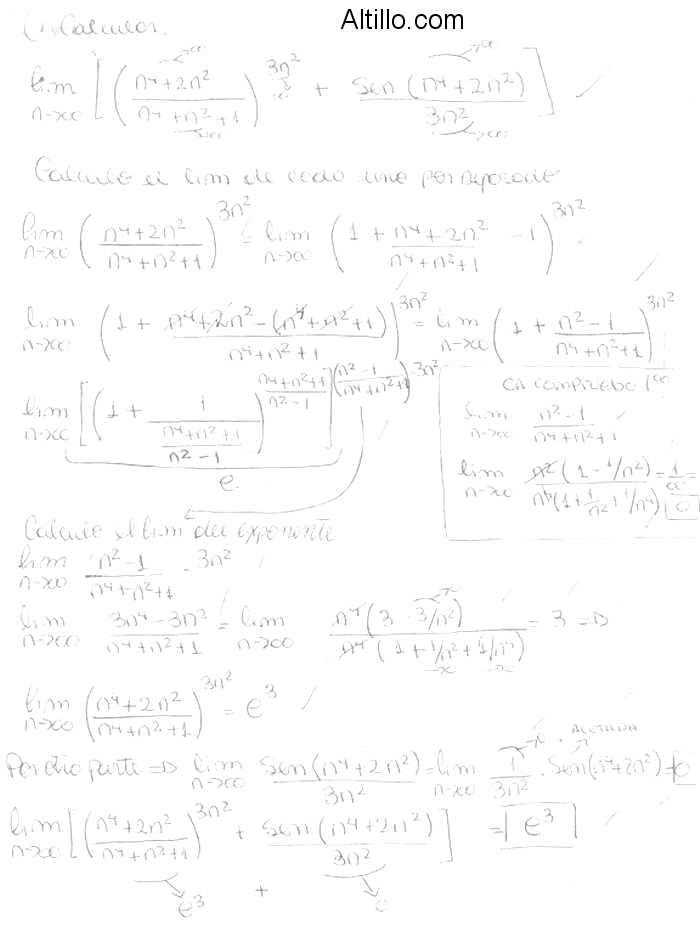 Altillo.com
1) Calculos.
lim n→∞ [ ( (n⁴+2n²) / (n⁴+n²+1) )^(3n²) + Sen(n⁴+2n²) / 3n² ] ✓
Calculo el lim de cada uno por separado
lim n→∞ ( (n⁴+2n²) / (n⁴+n²+1) )^(3n²) = lim n→∞ ( 1 + (n⁴+2n²) / (n⁴+n²+1) - 1 )^(3n²)
lim n→∞ ( 1 + (n⁴+2n² - (n⁴+n²+1)) / (n⁴+n²+1) )^(3n²) = lim n→∞ ( 1 + (n²-1) / (n⁴+n²+1) )^(3n²)
lim n→∞ [ ( 1 + 1 / ((n⁴+n²+1) / (n²-1)) )^((n⁴+n²+1) / (n²-1)) ]^(((n²-1) / (n⁴+n²+1)) · 3n²)
e
CA COMPRUEBO 1^∞
lim n→∞ (n²-1) / (n⁴+n²+1)
lim n→∞ n²(1 - 1/n²) / n⁴(1 + 1/n² + 1/n⁴) = 1/∞ = 0
Calculo el lim del exponente
lim n→∞ (n²-1) / (n⁴+n²+1) · 3n²
lim n→∞ (3n⁴-3n²) / (n⁴+n²+1) = lim n→∞ n⁴(3 - 3/n²) / n⁴(1 + 1/n² + 1/n⁴) = 3 ⇒
lim n→∞ ( (n⁴+2n²) / (n⁴+n²+1) )^(3n²) = e³
Por otro parte ⇒ lim n→∞ Sen(n⁴+2n²) / 3n² = lim n→∞ 1 / 3n² →0 · Sen(n⁴+2n²) = 0
ACOTADA
lim n→∞ [ ( (n⁴+2n²) / (n⁴+n²+1) )^(3n²) + Sen(n⁴+2n²) / 3n² ] = e³
e³ + 0